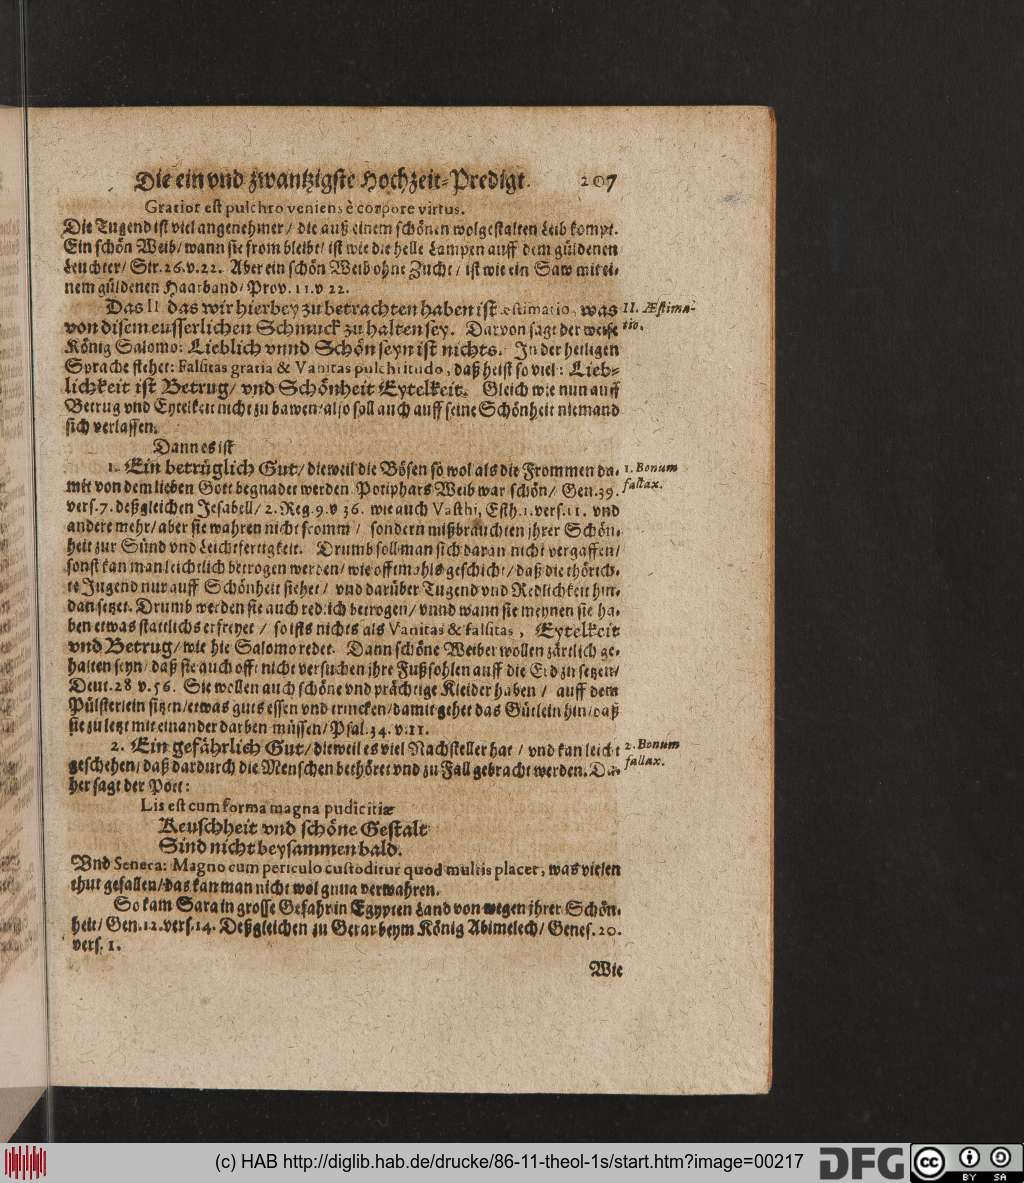 Die ein vnd zwantzigste Hochzeit-Predigt. 207
Gratior est pulchro veniens è corpore virtus.
Die Tugend ist viel angenehmer / die auß einem schönen wolgestalten Leib kompt.
Ein schön Weib / wann sie from bleibt / ist wie die helle Lampen auff dem güldenen
Leuchter / Syr. 26. v. 22. Aber ein schön Weib ohne Zucht / ist wie ein Saw mit ei-
nem güldenen Haarband / Prov. 11. v 22.
Das II das wir hierbey zu betrachten haben ist æstimatio, was
II. Æstima-
von disem eusserlichen Schmuck zu halten sey. Darvon sagt der weise
tio.
König Salomo: Lieblich vnnd Schön seyn ist nichts. In der heiligen
Sprache stehet: Falsitas gratia & Vanitas pulchritudo, daß heist so viel: Lieb-
lichkeit ist Betrug / vnd Schönheit Eytelkeit. Gleich wie nun auff
Betrug vnd Eytelkeit nicht zu bawen / also soll auch auff seine Schönheit niemand
sich verlassen.
Dann es ist
1. Ein betrüglich Gut / dieweil die Bösen so wol als die Frommen da-
1. Bonum
mit von dem lieben Gott begnadet werden. Potiphars Weib war schön / Gen. 39.
fallax.
vers. 7. deßgleichen Jesabell / 2. Reg. 9. v 36. wie auch Vasthi, Esth. 1. vers. 11. vnd
andere mehr / aber sie wahren nicht fromm / sondern mißbrauchten jhrer Schön-
heit zur Sünd vnd Leichtfertigkeit. Drumb soll man sich daran nicht vergaffen /
sonst kan man leichtlich betrogen werden / wie offtmahls geschicht / daß die thörich-
te Jugend nur auff Schönheit siehet / vnd darüber Tugend vnd Redlichkeit hin-
dan setzet. Drumb werden sie auch redlich betrogen / vnnd wann sie meynen sie ha-
ben etwas stattlichs erfreyet / so ists nichts als Vanitas & falsitas, Eytelkeit
vnd Betrug / wie hie Salomo redet. Dann schöne Weiber wollen zärtlich ge-
halten seyn / daß sie auch offt nicht versuchen jhre Fußsohlen auff die Erd zu setzen /
Deut. 28 v. 56. Sie wollen auch schöne vnd prächtige Kleider haben / auff dem
Pülsterlein sitzen / etwas guts essen vnd trincken / damit gehet das Gütlein hin / daß
sie zu letzt mit einander darben müssen / Psal. 34. v. 11.
2. Ein gefährlich Gut / dieweil es viel Nachsteller hat / vnd kan leicht
2. Bonum
geschehen / daß dardurch die Menschen bethöret vnd zu Fall gebracht werden. Da-
fallax.
her sagt der Poet:
Lis est cum forma magna pudicitiæ
Keuschheit vnd schöne Gestalt
Sind nicht beysammen bald.
Vnd Seneca: Magno cum periculo custoditur quod multis placet, was vielen
thut gefallen / das kan man nicht wol gnug verwahren.
So kam Sara in grosse Gefahr in Egypten Land von wegen jhrer Schön-
heit / Gen. 12. vers. 14. Deßgleichen zu Gerar beym König Abimelech / Genes. 20.
vers. 1.
Wie
(c) HAB http://diglib.hab.de/drucke/86-11-theol-1s/start.htm?image=00217
DFG
cc BY SA